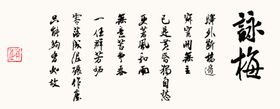 詠梅
驛外斷橋邊
寂寞開無主
已是黃昏獨自愁
更著風和雨
無意苦爭春
一任群芳妒
零落成泥碾作塵
只有香如故